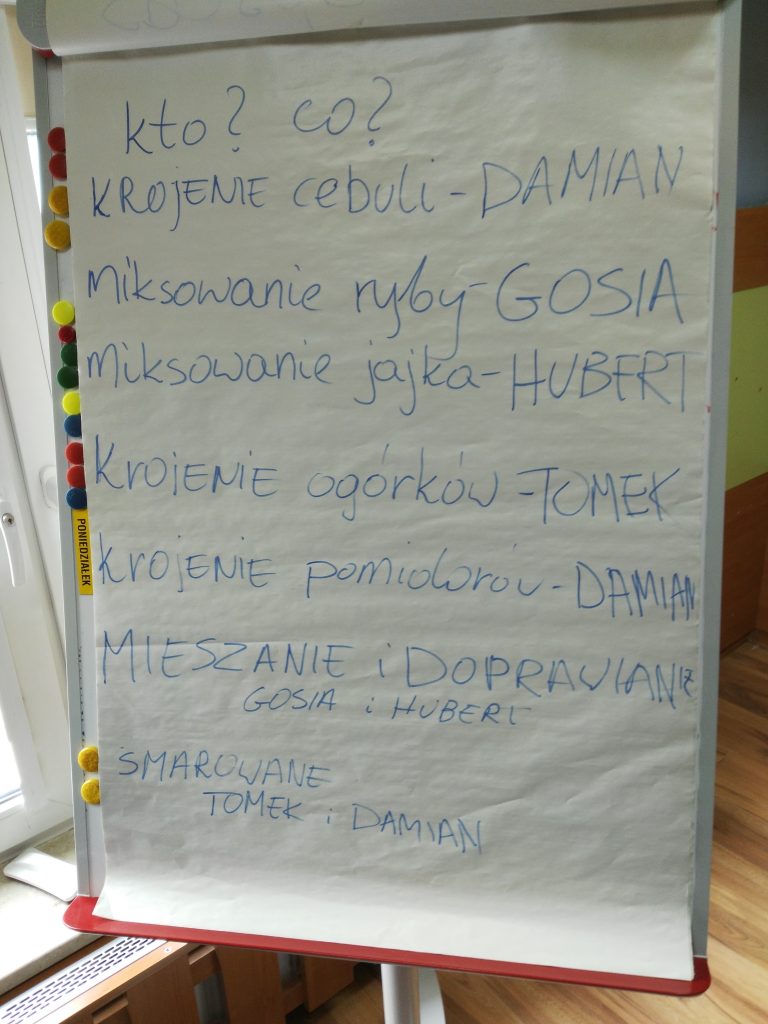 kto? co?
KROJENIE cebuli - DAMIAN
miksowanie ryby - GOSIA
miksowanie jajka - HUBERT
KROJENIE ogórków - TOMEK
KROJENIE pomidorów - DAMIAN
MIESZANIE i DOPRAWIANIE
GOSIA i HUBERT
SMAROWANE
TOMEK i DAMIAN
PONIEDZIAŁEK